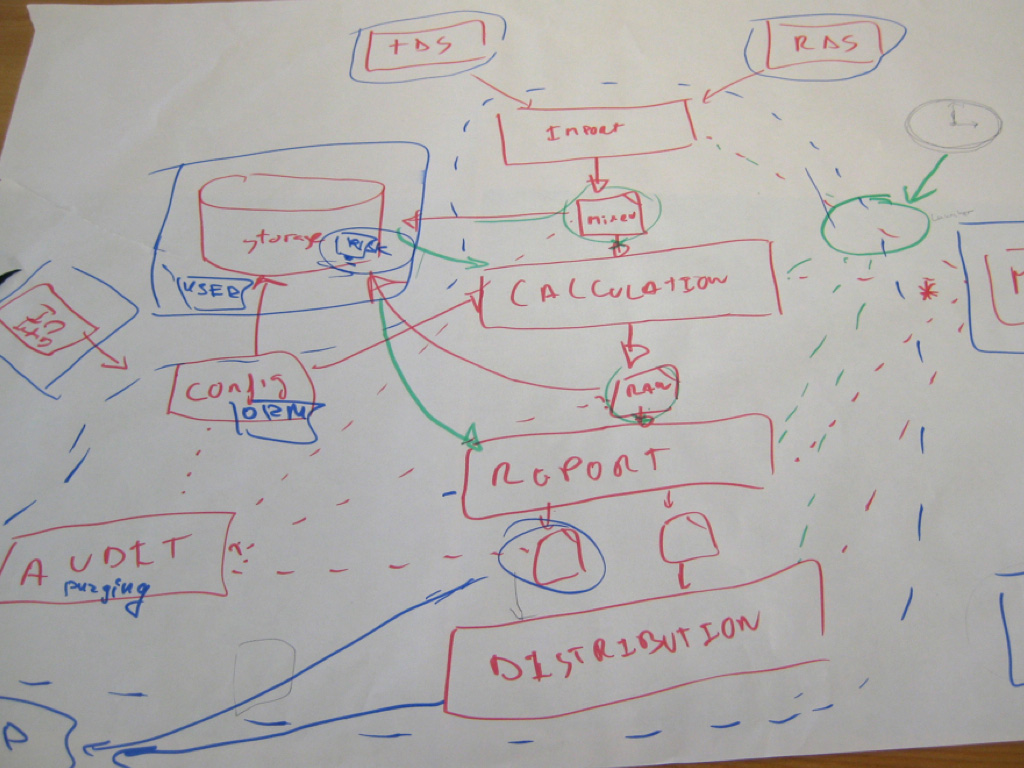 TDS
RDS
IMPORT
Mixed
storage
RISK
USER
CALCULATION
Config
ORM
RAW
REPORT
AUDIT
purging
DISTRIBUTION
P